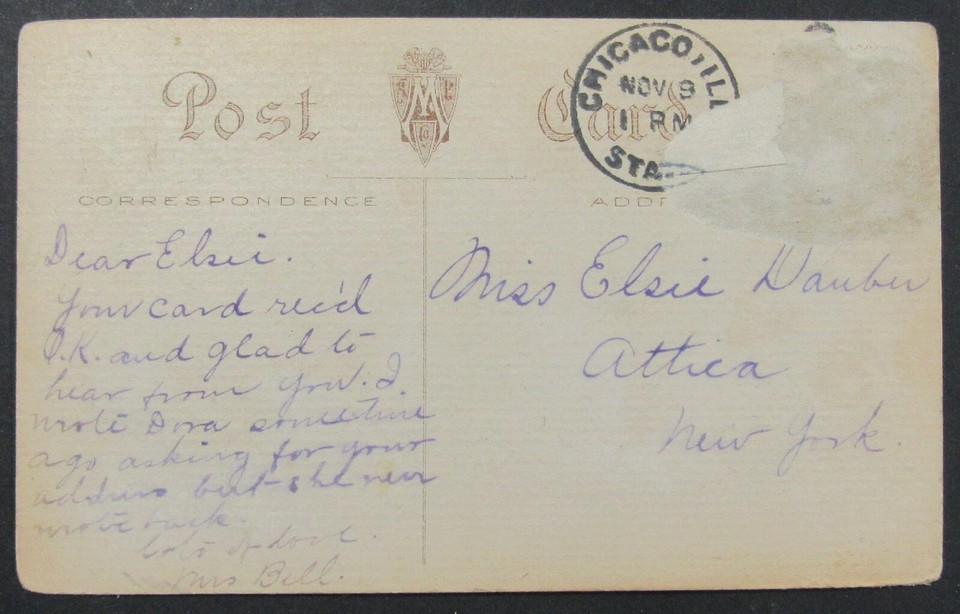 Post Card
CHICAGO, ILL
NOV 8
1 PM
STA.
CORRESPONDENCE
ADDR
Dear Elsie.
Your card rec'd
O.K. and glad to
hear from you. I
wrote Dora sometime
ago asking for your
address but she never
wrote back.
Lots of love.
Mrs Bell.
Miss Elsie Dauber
Attica
New York.